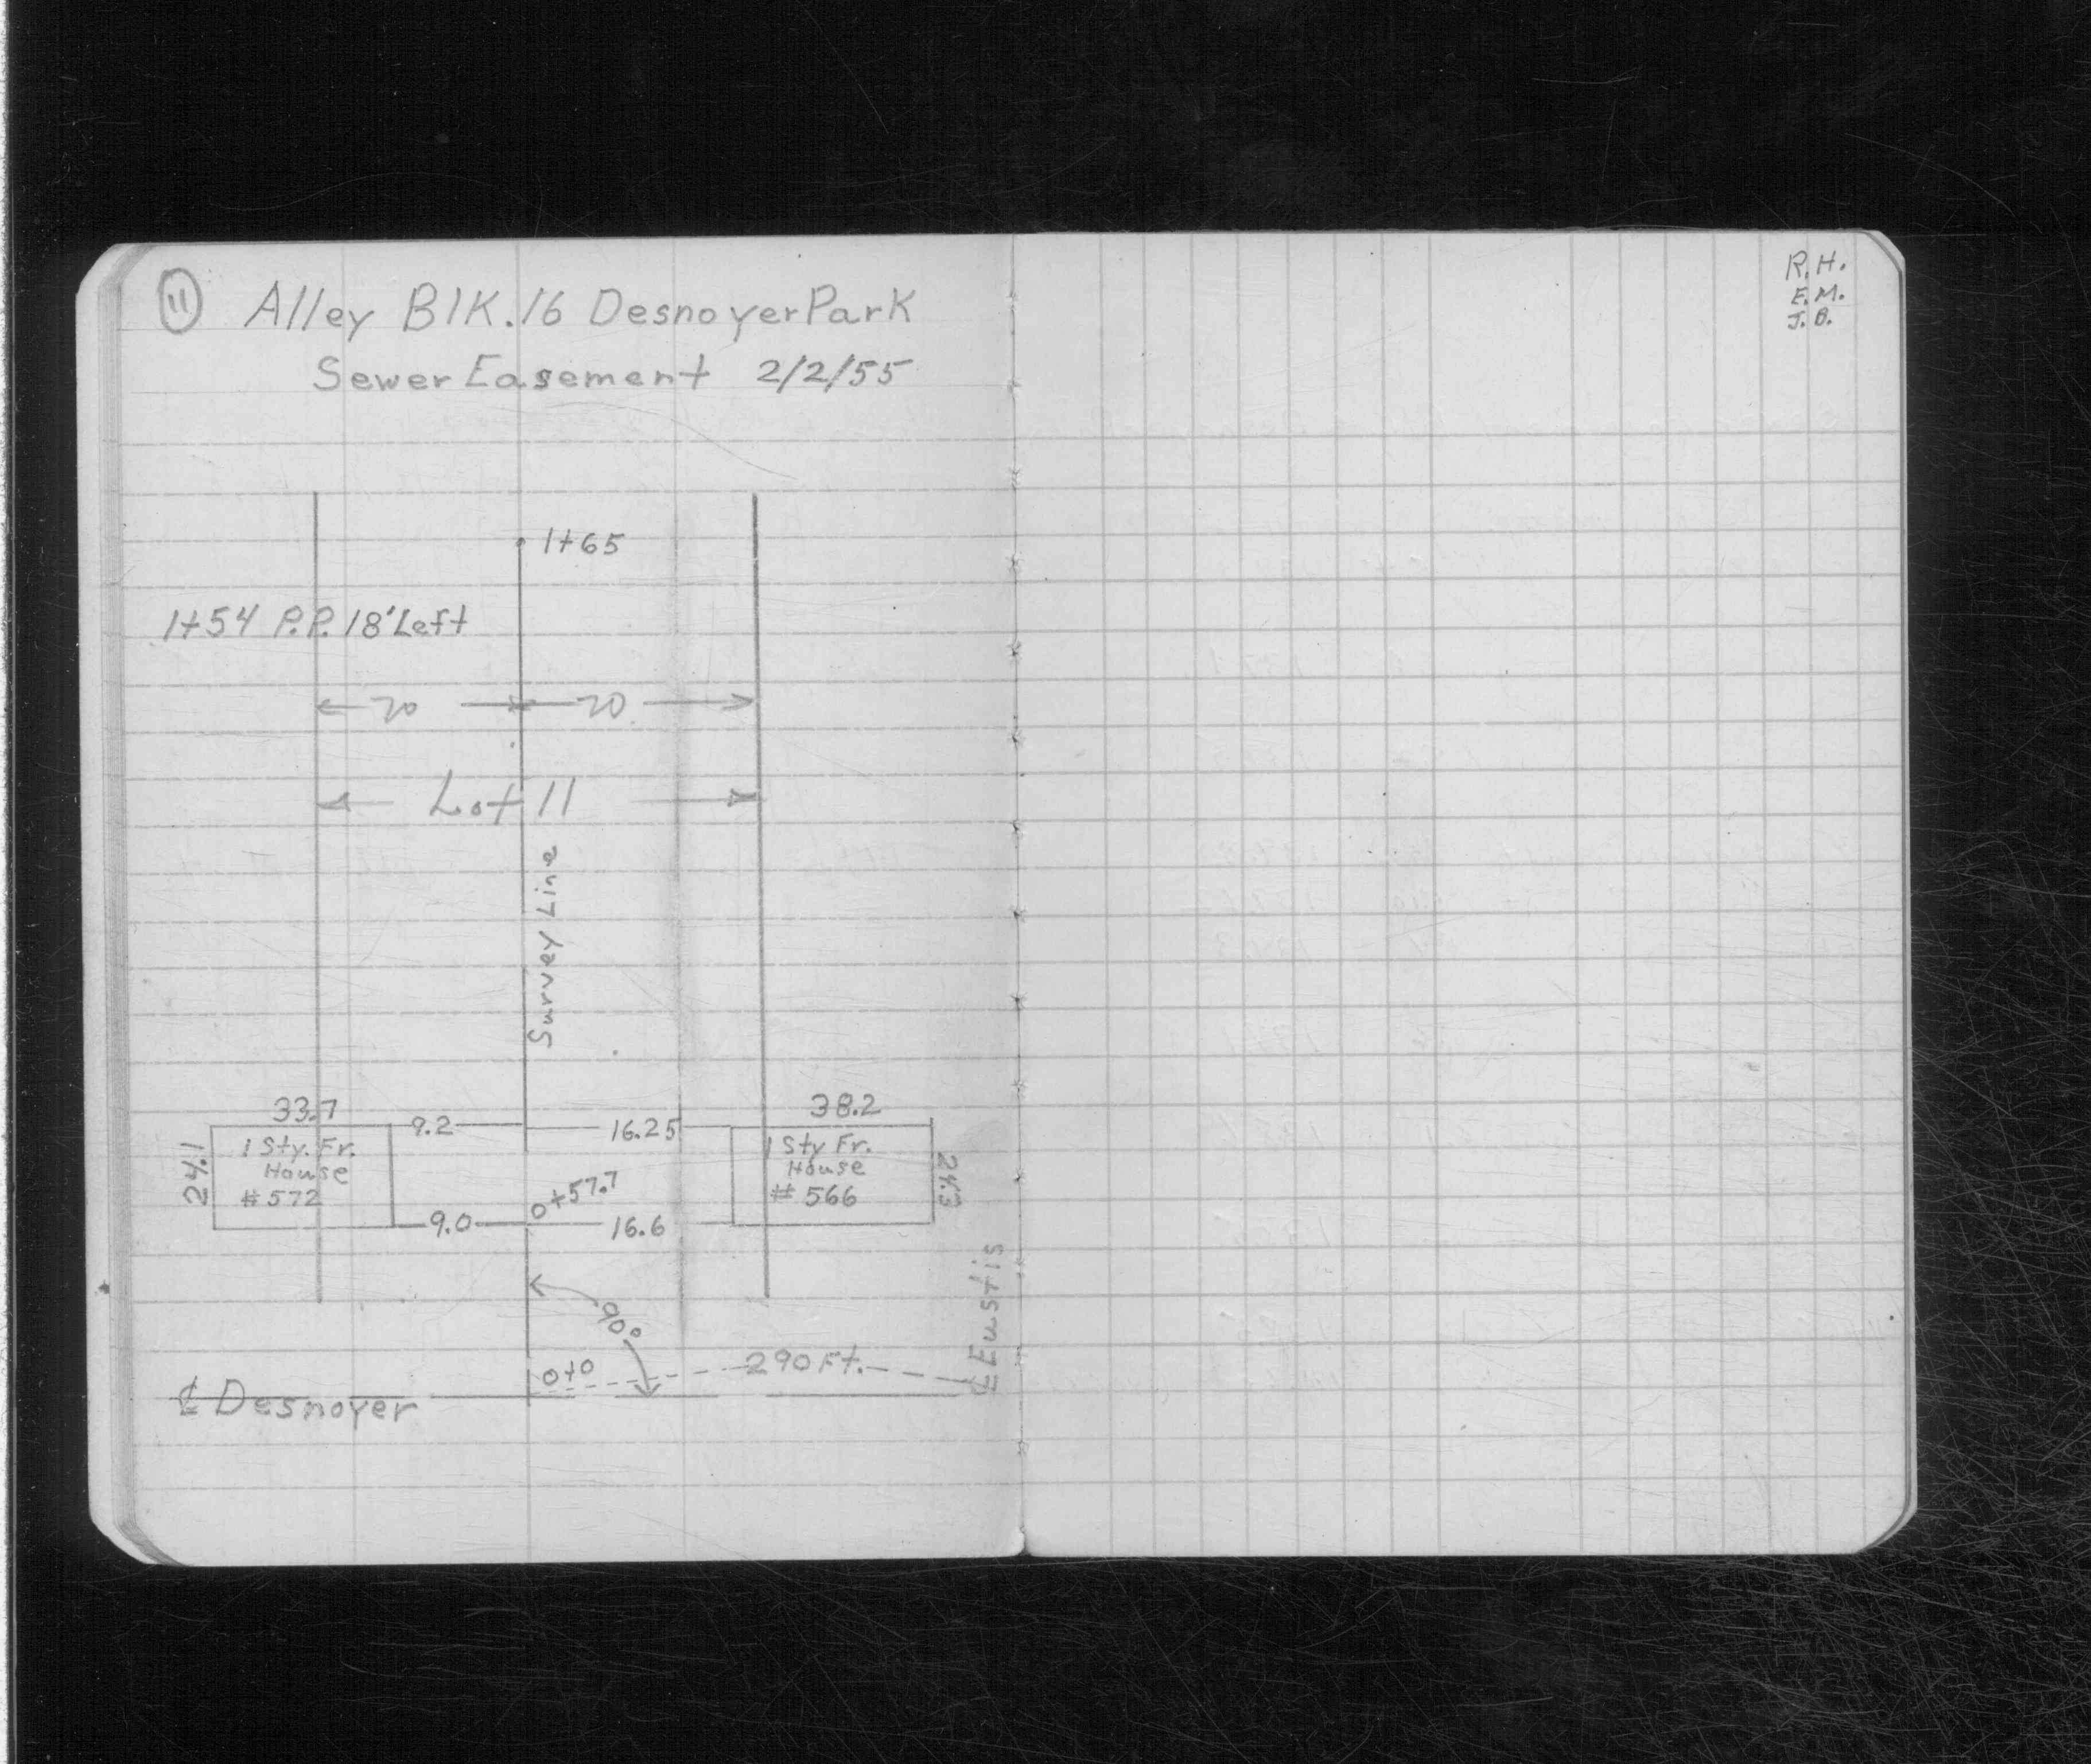 11 Alley Blk.16 Desnoyer Park
Sewer Easement 2/2/55
R.H.
E.M.
J.B.
1+65
1+54 P.P. 18' Left
20 20
Lot 11
Survey Line
33.7 9.2 16.25 38.2
24.1
1 Sty. Fr.
House
#572
1 Sty Fr.
House
# 566
24.3
0+57.7
9.0 16.6
90°
0+0 290 Ft.
℄ Eustis
℄ Desnoyer